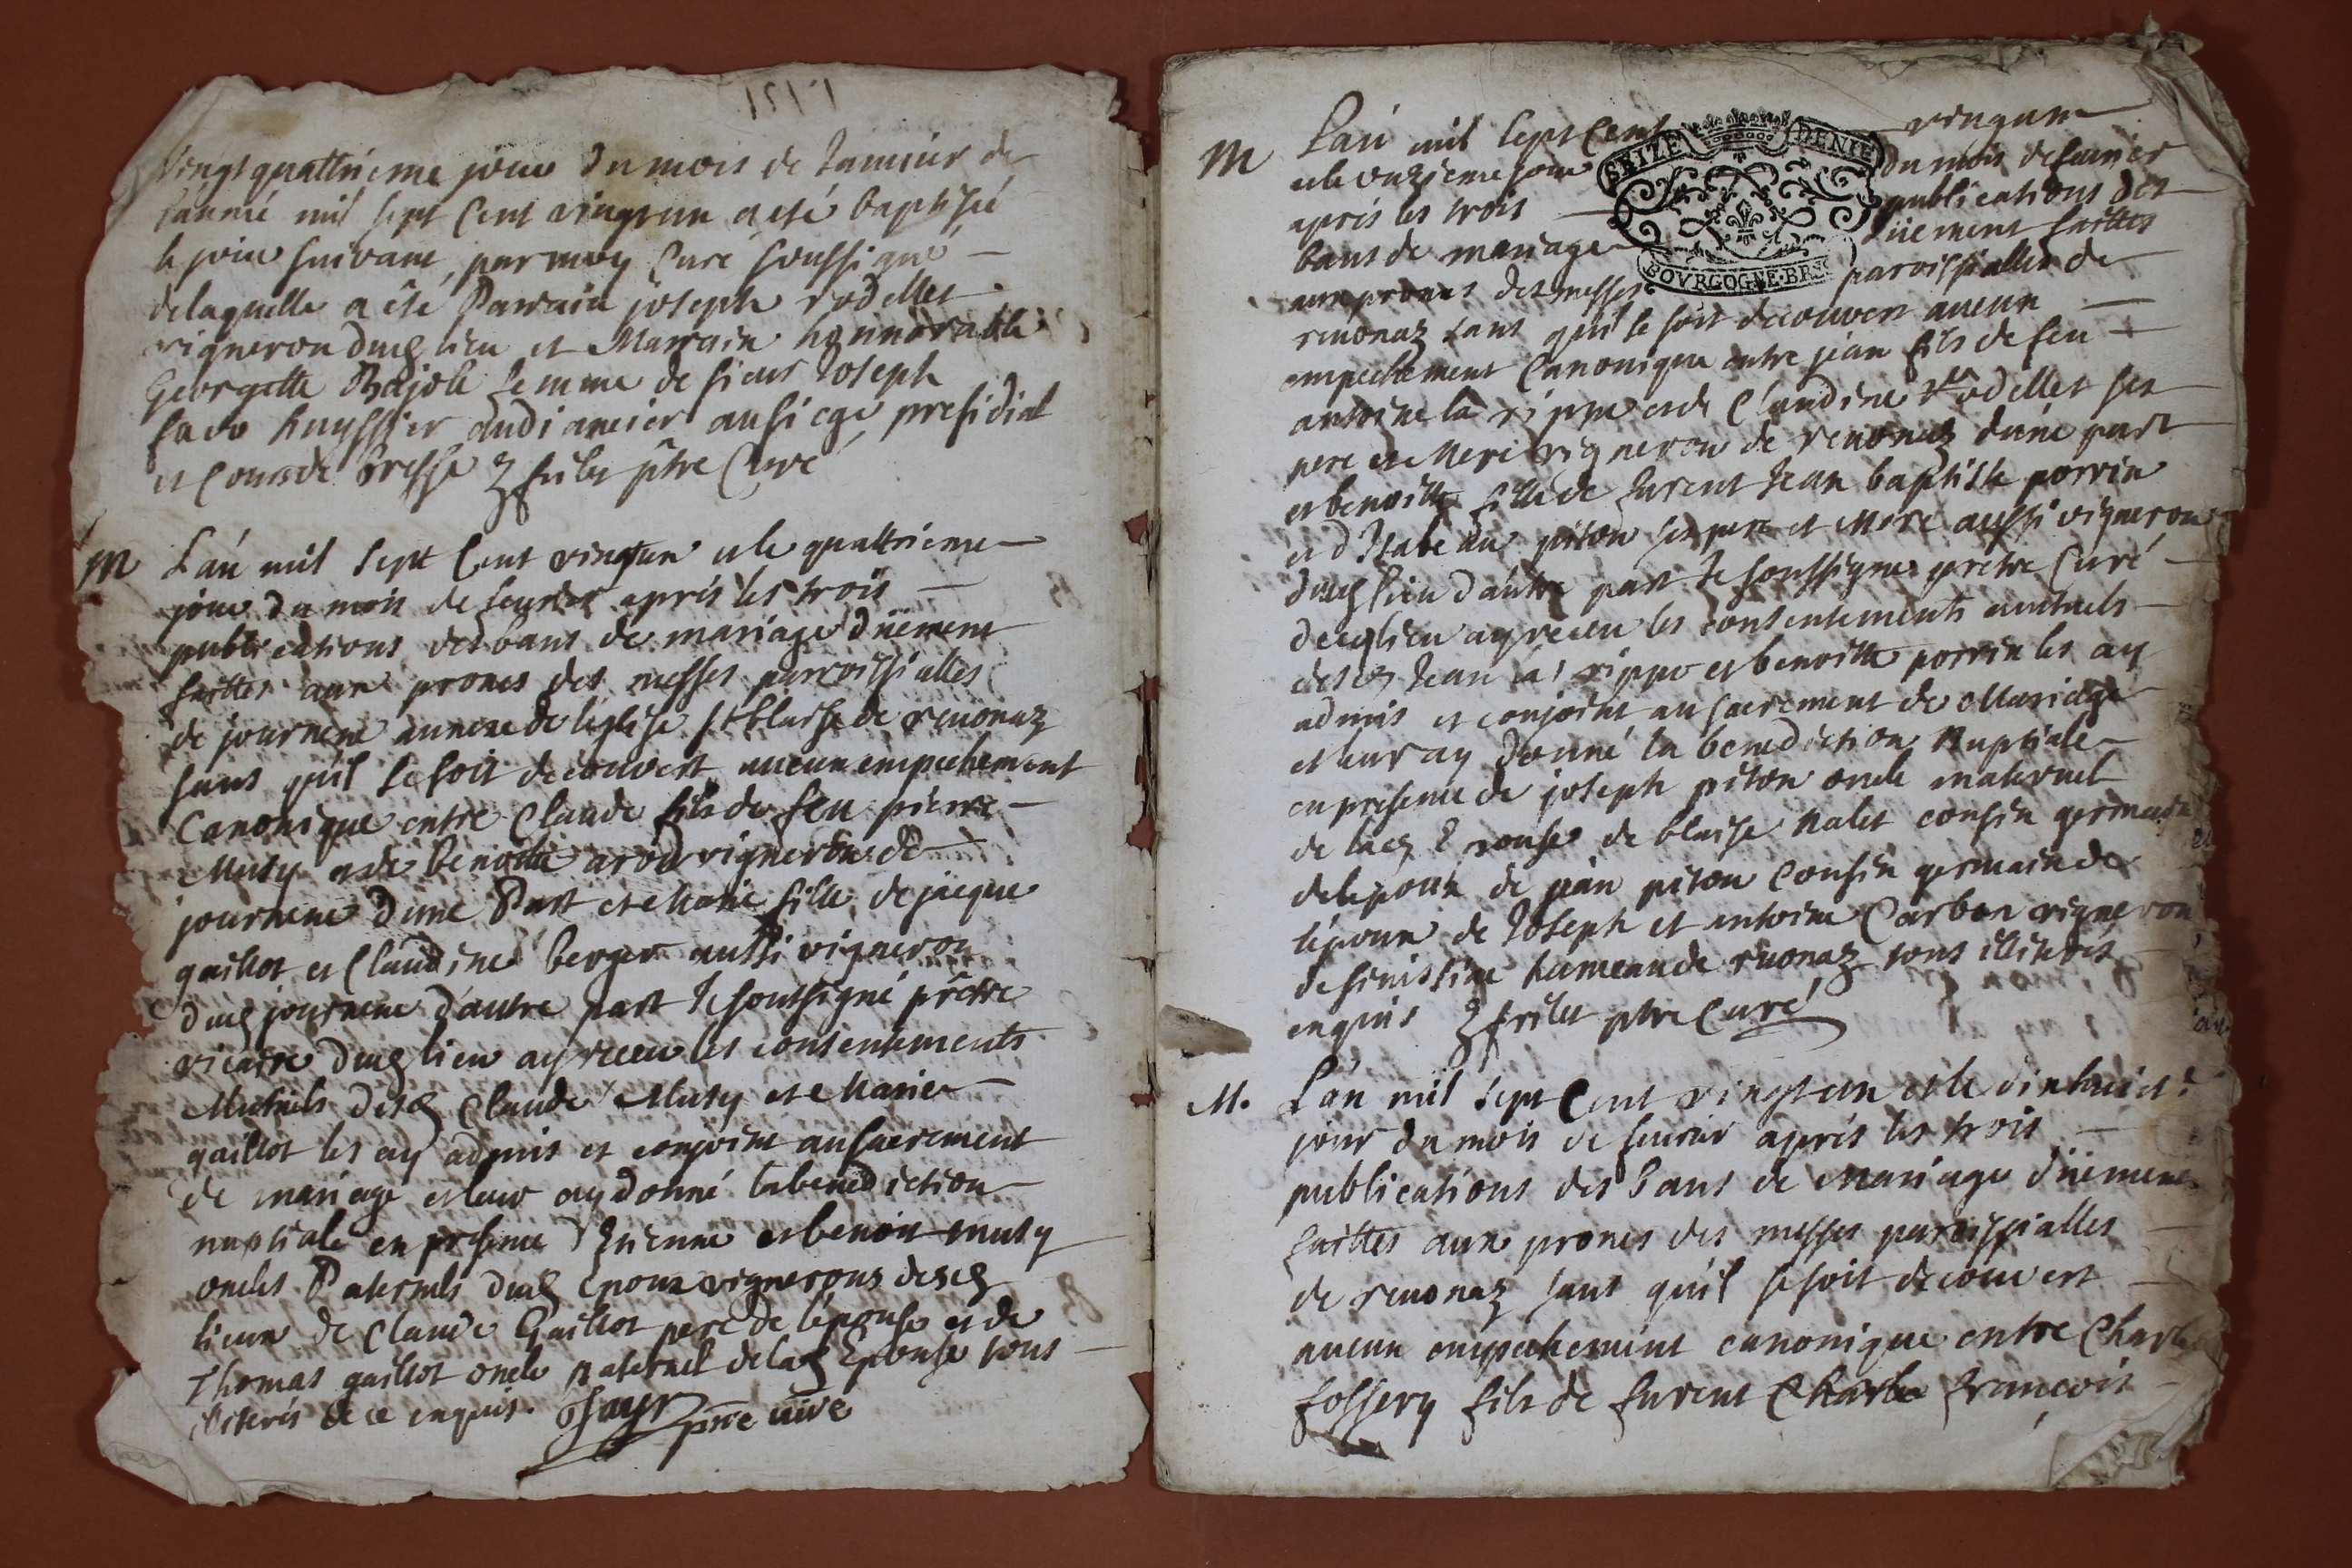 1721
vingt quattrieme jour du mois de Janvier de
l'année mil sept Cent vingt un a esté baptisée
le jour suivant, par moy Curé soussigné
de laquelle a esté Parrain joseph rodelles
vigneron dud lieu et Marrain honnorable
Georgette Bajole femme de sieur Joseph
huyssier audiancier au siege presidial
et Cours de Bresse frilet ptre Curé
M
L'an mil sept Cent vingtun et le quattrieme
jour du mois de feuvrier aprés les trois
publications des bans de mariage düement
faittes aux prones des messes parroissialles
de journent annexe de l'eglise St blaise de reuonaz
sans qu'il se soit decouvert aucun empechement
Canonique entre Claude fils de feu pierre
Musy et de benoitte arod vignerons de
journent d'une Part et Marie fille de jacque
gaillot et Claudine berger aussi vigneron
dud journent d'autre part Je soussigné prêtre
vicaire dud lieu ay receu les consentements
Mutuels desd Claude Musy et Marie
gaillot les ay admis et conjoint au sacrement
de mariage et leur ay donné la benediction
nuptiale en presence d'Etienne et benoit musy
oncles Paternels dud Epoux vignerons desd
lieux de Claude Gaillot pere de l'épouse et de
Thomas gaillot oncle paternel de lad Epouse tous
illiterés de ce enquis. ptre vire
M
L'an mil sept Cent vingtun
et le onzieme jour du mois de feuvrier
aprés les trois publications des
bans de mariage düement faittes
aux prones des messes paroissialles de
reuonaz sans qu'il se soit decouvert aucun
empechement Canonique entre jean fils de feu
antoine la rippe et de Claudine rodelles ses
pere et Mere vigneron de reuonaz d'une part
et benoitte fille de furent Jean baptiste porrin
et d'Isabeau piton ses pere et Mere aussi vigneron
dud lieu d'autre part Je soussigné prêtre Curé
dud lieu ay receu les consentements mutuels
desd Jean la rippe et benoitte porrin les ay
admis et conjoint au sacrement de Mariage
et leur ay donné la benediction Nuptiale
en presence de joseph piton oncle maternel
de lad Epouse de blaise Nalet cousin germain
de l'epoux de jean piton Cousin germain de
l'époux de Joseph et antoine Carbon vigneron
de sinissiat hameau de reuonaz tous illiterés
enquis frilet ptre Curé
M.
L'an mil sept Cent vingt un et le dixhuict
jour du mois de feuvrier aprés les trois
publications des bans de Mariage düement
faittes aux prones des messes paroissialles
de reuonaz sans qu'il se soit decouvert
aucun empechement canonique entre Charle
fossery fils de furent Charle françois
SEIZE DENIE
BOVRGOGNE·BR